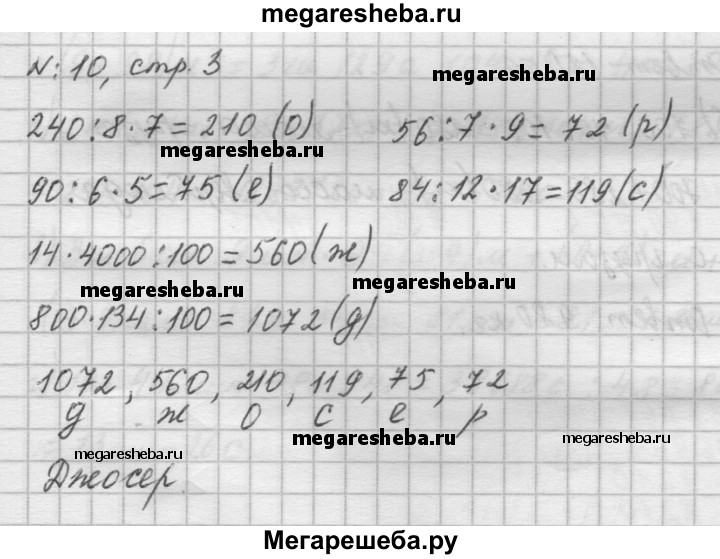 megaresheba.ru
№: 10, стр. 3
megaresheba.ru
240:8·7=210 (о) 56:7·9=72 (р)
megaresheba.ru
90:6·5=75 (е) 84:12·17=119 (с)
14·4000:100=560 (ж)
megaresheba.ru megaresheba.ru
800·134:100=1072 (д)
1072, 560, 210, 119, 75, 72
д ж о с е р
megaresheba.ru megaresheba.ru
megaresheba.ru
Джосер.
Мегарешеба.ру